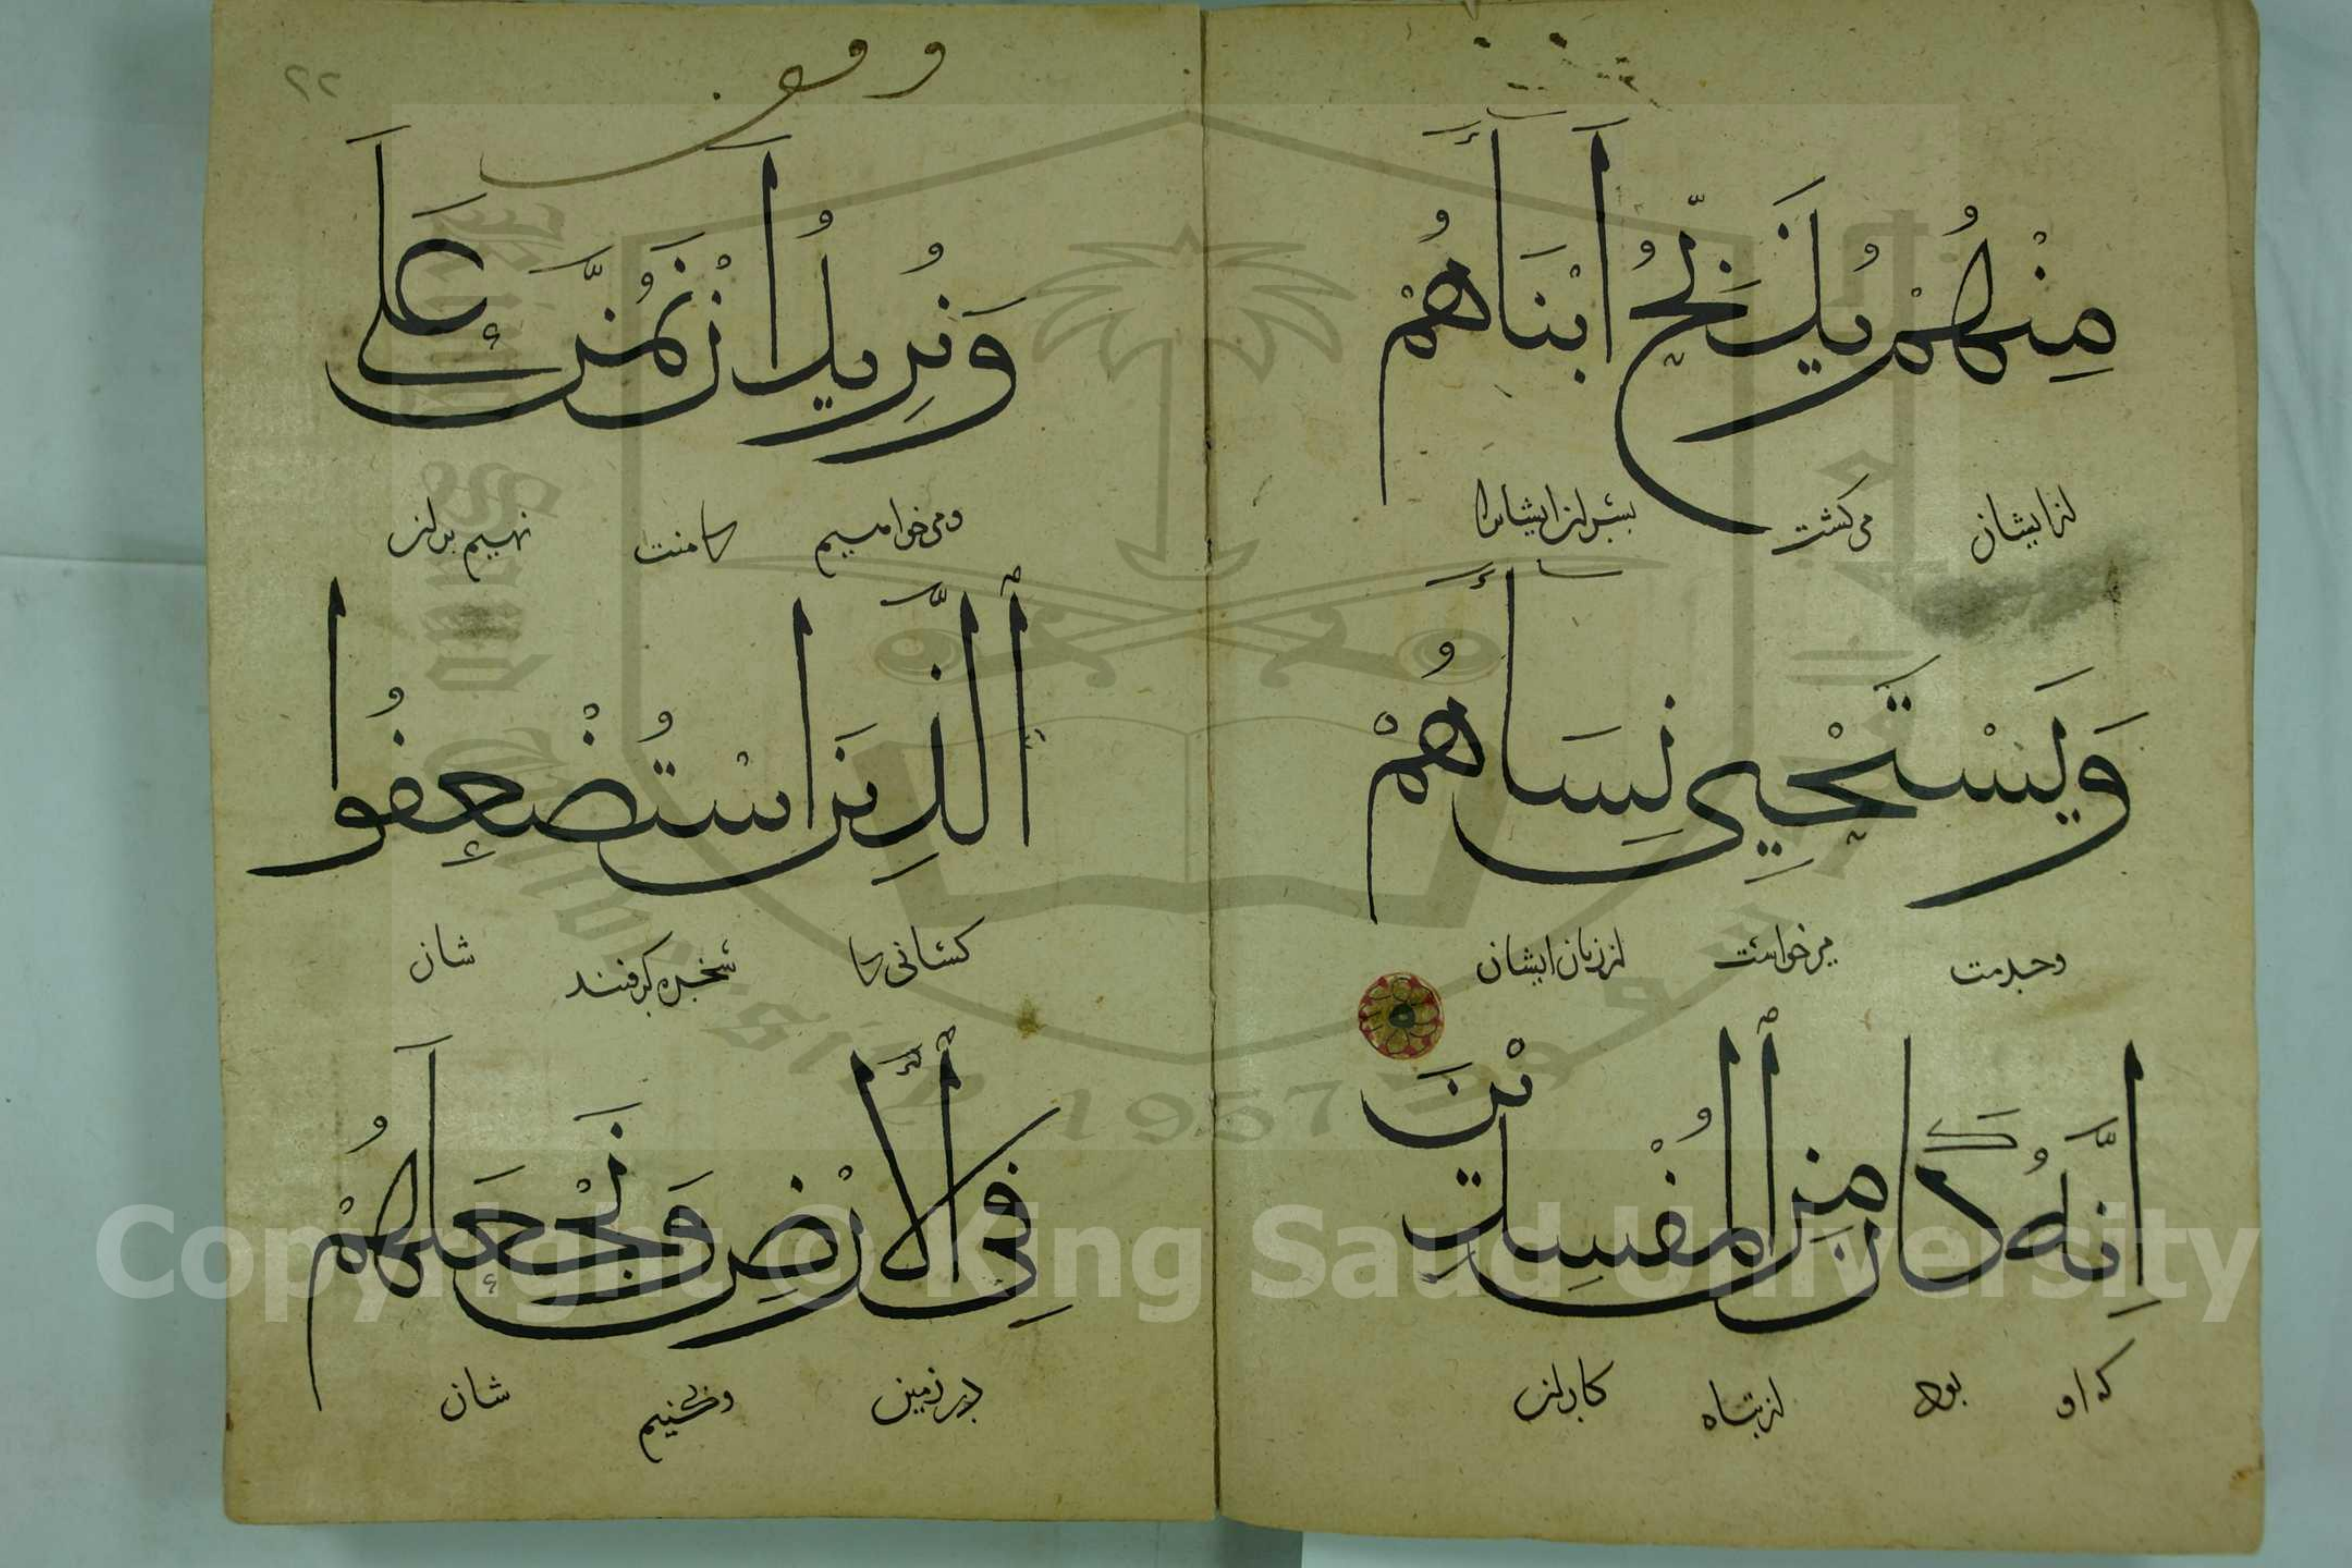 مِنْهُمْ يُذَبِّحُ أَبْنَآءَهُمْ
از ایشان می کشت پسران ایشانرا
وَيَسْتَحْيِي نِسَآءَهُمْ
وخدمت می خواست از زنان ایشان
إِنَّهُ كَانَ مِنَ ٱلْمُفْسِدِينَ
که او بود از تباه کاران
وقف
٢٢
وَنُرِيدُ أَنْ نَمُنَّ عَلَى
ومی خواهیم کا منت نهیم بران
ٱلَّذِينَ اسْتُضْعِفُوا
کسانی کا سخره گرفتند شان
فِي ٱلْأَرْضِ وَنَجْعَلَهُمْ
در زمین وکنیم شان
Copyright © King Saud University
1957